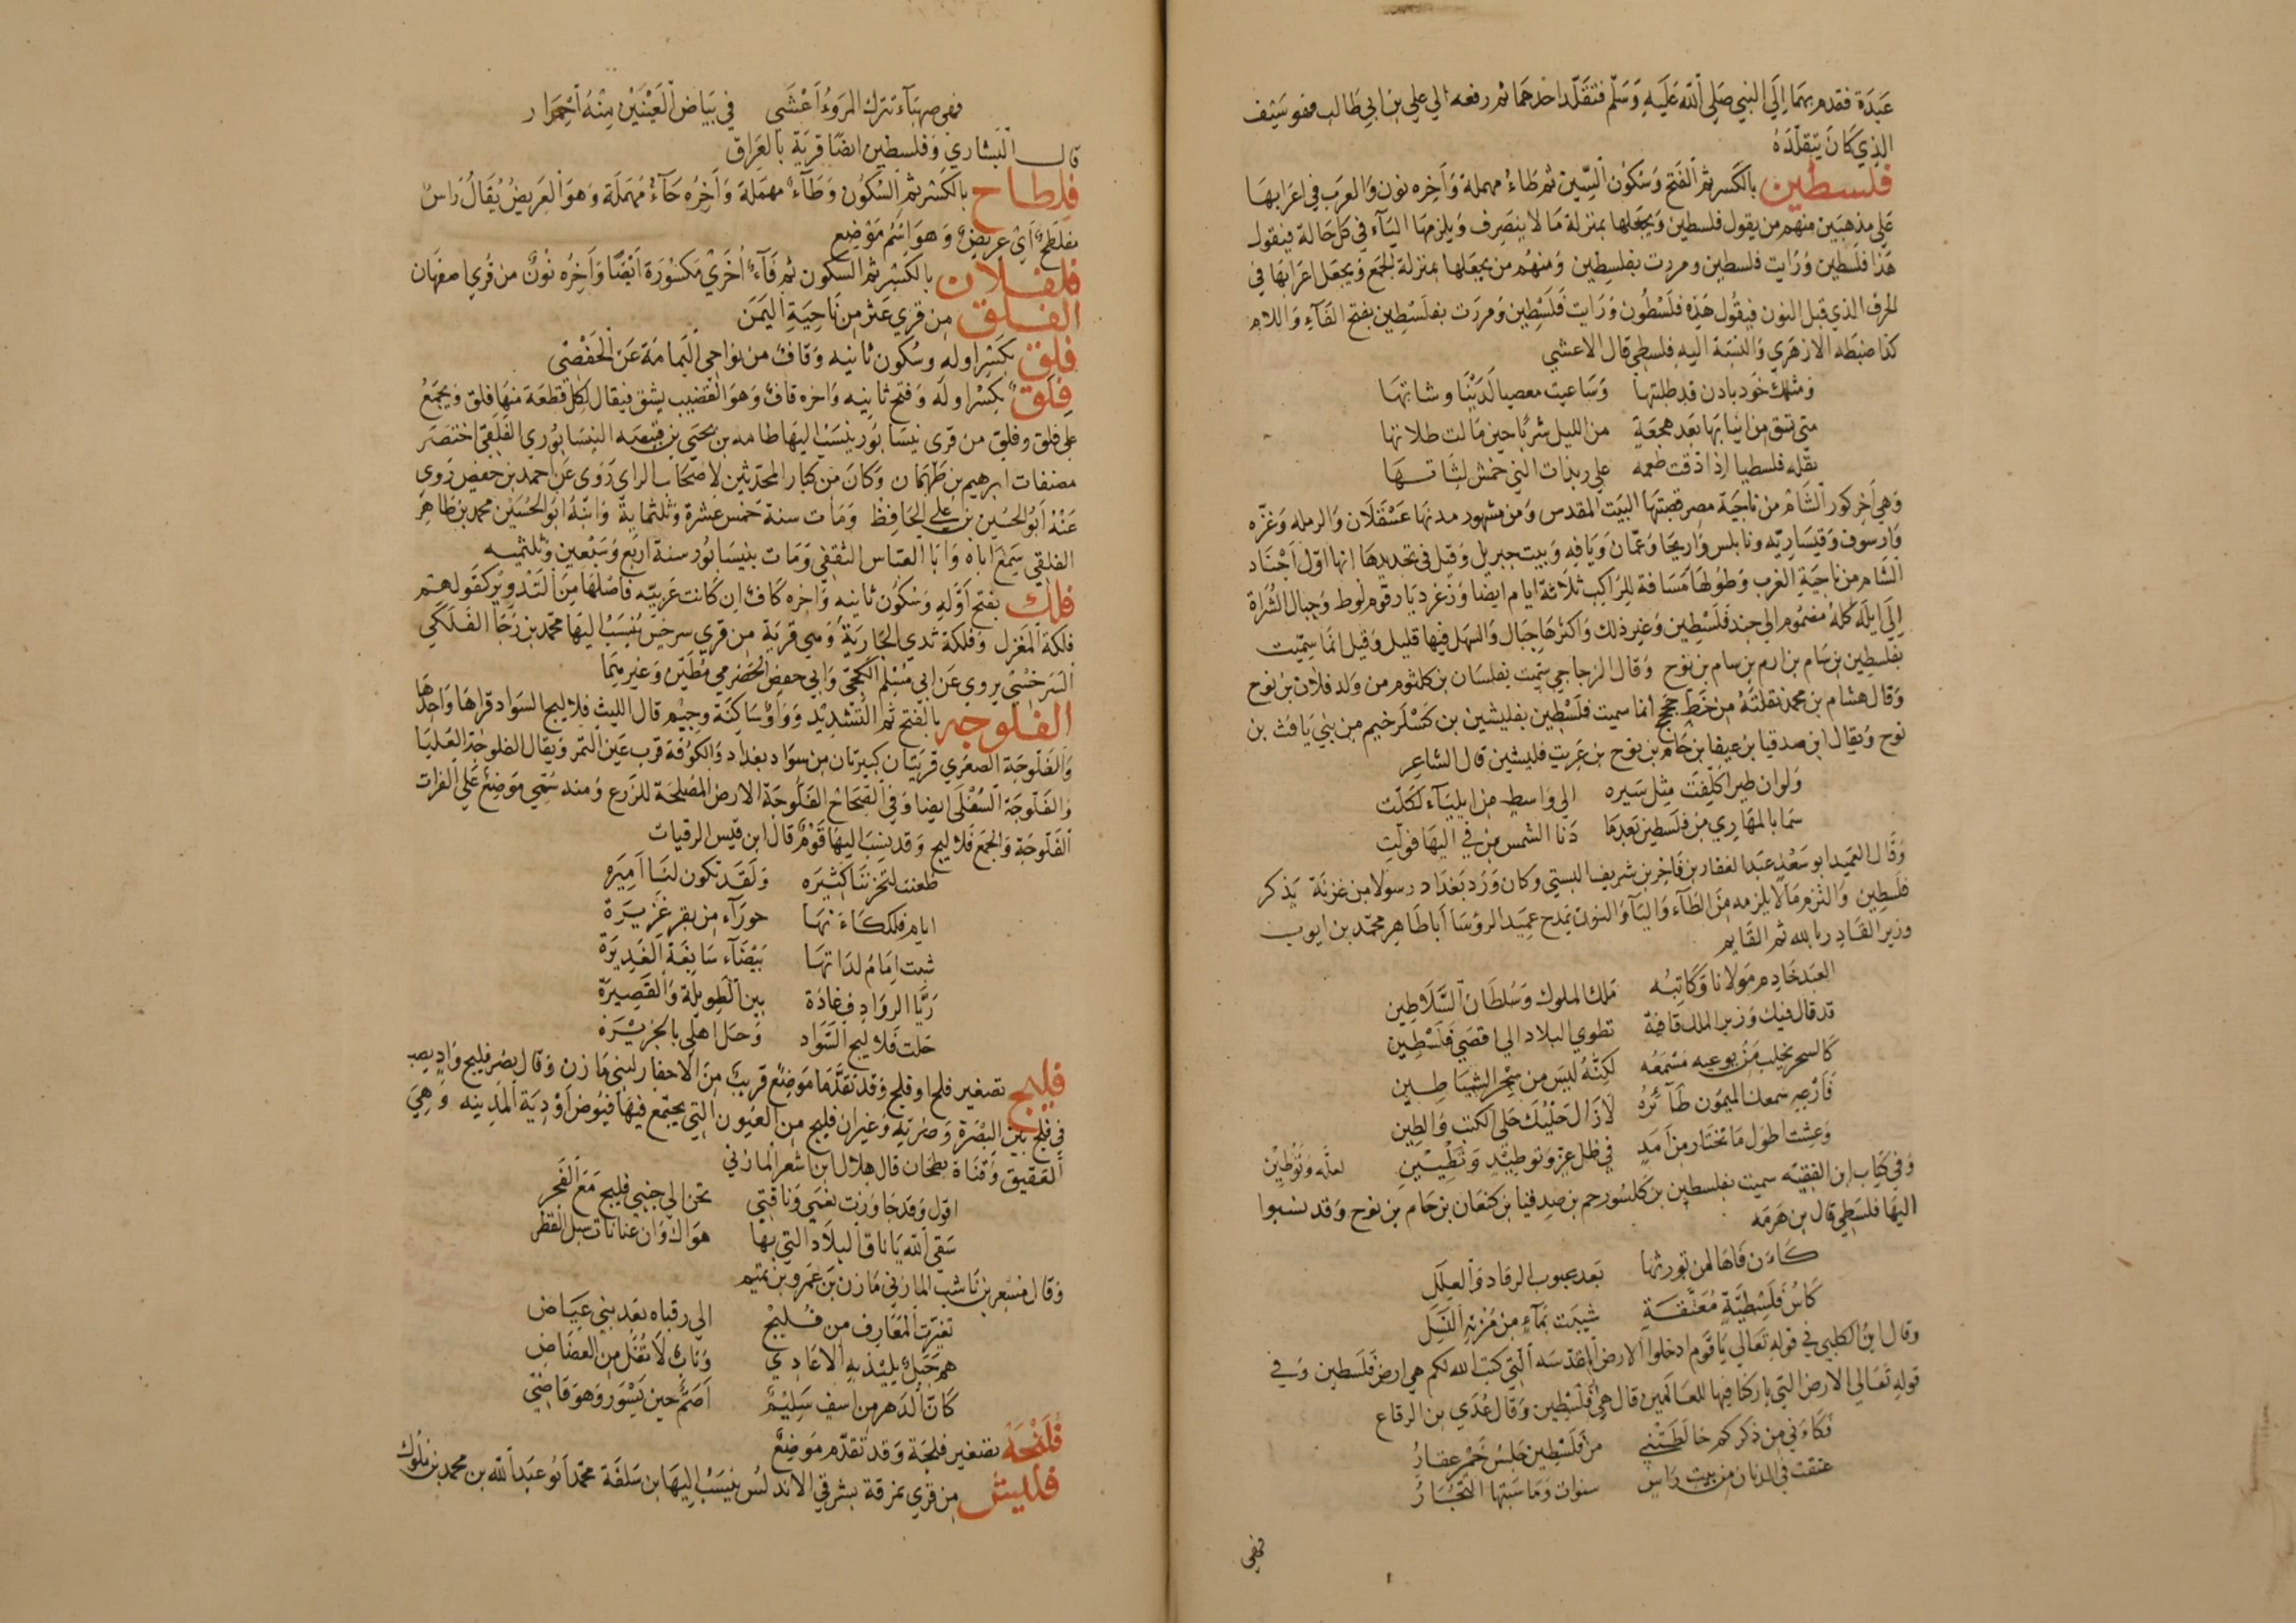 عبدة فقدم بهما الى النبي صلى الله عليه وسلم فتقلد احدهما ثم رفعه الي علي بن ابي طالب فهو سيف
الذي كان يتقلده
فلسطين بالكسر ثم الفتح وسكون السين ثم طاء مهملة وآخره نون والعرب في اعرابها
على مذهبين منهم من يقول فلسطين ويجعلها بمنزلة ما لا ينصرف ويلزمها الياء في كل حالة فيقول
هذا فلسطين ورايت فلسطين ومررت بفلسطين ومنهم من يجعلها بمنزلة الجمع ويجعل اعرابها في
الحرف الذي قبل النون فيقول هذه فلسطون ورايت فلسطين ومررت بفلسطين بفتح الفآء واللام
كذا ضبطه الازهري والنسبة اليه فلسطي قال الاعشى
ومثلك خود بادن قد طلبتها وساعيت معصيا لدينا وشاتها
متى تسق من انيابها بعد هجعة من الليل شربا حين مالت طلاتها
تقله فلسطيا اذا ذقت طعمه علي ربذات الني حمش لثاتها
وهي آخر كور الشام من ناحية مصر قصبتها البيت المقدس ومن مشهور مدنها عسقلان والرمله وغزه
وارسوف وقيساريه ونابلس واريحا وعمان ويافه وبيت جبريل وقيل في تحديدها انها اول اجناد
الشام من ناحية الغرب وطولها مسافة للراكب ثلاثة ايام ايضا وزغر ديار قوم لوط وجبال الشراة
الى ايلة كله مضموم الى جند فلسطين وغير ذلك واكثرها جبال والسهل فيها قليل وقيل انما سميت
بفلسطين بن سام بن ارم بن سام بن نوح وقال الزجاجي سميت بفلسان بن كلثوم من ولد فلان بن نوح
وقال هشام بن محمد نقلته من خط جحجح انما سميت فلسطين بفليشين بن كسلرخيم من بني يافث بن
نوح ويقال ابن صدقيا بن عيفا بن حام بن نوح بن عربت فليشين قال الشاعر
ولو ان طيرا كلفت مثل سيره الي واسط من ايلياء لكلت
سما بالمهاري من فلسطين بعدما دنا الشمس من في اليها فولت
وقال العميد ابو سعد عبد الغفار بن فاخر بن شريف البستي وكان ورد بغداد رسولا من غزنة يذكر
فلسطين والتزم ما لا يلزمه من الطاء والياء والنون يمدح عميد الرؤسا اباطاهر محمد بن ايوب
وزير القادر بالله ثم القايم
العبد خادم مولانا وكاتبه ملك الملوك وسلطان السلاطين
قد قال فيك وزير الملك قافية تطوي البلاد الى اقصي فلسطين
كالسحر يخلب من يوعيه مسمعه لكنه ليس من سحر الشياطين
فارجه سمعك الميمون طآئره لا زال حليك حلي الكتب والطين
وعشت اطول ما تختار من امد في ظل عز وتوطيد وتطيين لعله وتوطين
وفي كتاب ابن الفقيه سميت بفلسطين بن كلسورحم بن صدفيا بن كنعان بن حام بن نوح وقد نسبوا
اليها فلسطي قال بن هرمه
كاءن فاها لمن تورثها بعد هبوب الرقاد والعلل
كاس فلسطية معتقة شيبت بمآء من مزنه السبل
وقال ابن الكلبي في قوله تعالى ياقوم ادخلوا الارض المقدسه التي كتب الله لكم هي ارض فلسطين وفي
قوله تعالى الارض التي باركنا فيها للعالمين قال هي فلسطين وقال عدي بن الرقاع
فكاءني من ذكركم خالطتني من فلسطين جلس خمر عقار
عتقت في الدنان من بيت راس سنوات وما سبتها التجار
فهي
فهي صهباء تترك المرء اعشى في بياض العينين منه احمرار
قال البشاري وفلسطين ايضا قرية بالعراق
فلطاح بالكسر ثم السكون وطاء مهملة وآخره حآء مهملة وهو العريض يقال راس
مفلطح اي عريض وهو اسم موضع
فلفلان بالكسر ثم السكون ثم فآء اخرى مكسورة ايضا وآخره نون من قرى اصفهان
الفلق من قري عثر من ناحية اليمن
فلق بكسر اوله وسكون ثانيه وقاف من نواحي اليمامة عن الحفصي
فلق بكسر اوله وفتح ثانيه واخره قاف وهو القضيب يشق فيقال لكل قطعة منها فلق ويجمع
على فلق وفلق من قرى نيسابور ينسب اليها طاهر بن يحيى بن قبيصه النيسابوري الفلقي اختصر
مصنفات ابرهيم بن طهمان وكان من كبار المحدثين لاصحاب الراي روى عن احمد بن حفص روي
عنه ابو الحسين بن علي الحافظ ومات سنة خمس عشرة وثلثماية وابنه ابو الحسين محمد بن طاهر
الفلقي سمع اباه وابا العباس الثقفي ومات بنيسابور سنة اربع وسبعين وثلثميه
فلك بفتح اوله وسكون ثانيه واخره كاف ان كانت عربيه فاصلها من التدوير كقولهم
فلكة المغزل وفلكة ثدي الجارية وهي قرية من قري سرخس ينسب اليها محمد بن رجا الفلكي
السرخسي يروي عن ابي مسلم الكجي وابي حفص الحضرمي مطين وغيرهما
الفلوجه بالفتح ثم التشديد وواو ساكنة وجيم قال الليث فلاليج السواد قراها واحدها
والفلوجة الصغري قريتان كبيرتان من سواد بغداد والكوفة قرب عين التمر ويقال الفلوجة العليا
والفلوجة السفلى ايضا وفي الصحاح الفلوجة الارض المصلحة للزرع ومنه سمي موضع على الفرات
الفلوجة والجمع فلاليج وقد ينسب اليها قوم قال ابن قيس الرقيات
ظعنت لتحزننا كثيره ولقد تكون لنا اميره
ايام فلك كاءنها حورآء من بقر غريرة
شبت امام لداتها بيضآء سابغة الغديرة
ريا الروادف غادة بين الطويلة والقصيرة
حلت فلاليج السواد وحل اهلي بالجزيرة
فليج تصغير فلج او فلج وقد تقدما موضع قريب من الاحفار لبني مازن وقال نصر فليج واد يصب
في فلج بين البصرة وضريه وغيران فليج من العيون التي يجتمع فيها فيوض اودية المدينه وهي
العقيق وقناة بطحان قال هلال ابن اشعر المازني
اقول وقد جاوزت نعمي وناقتي تحن الي جنبي فليج مع الفجر
سقى الله ياناق البلاد التي بها هواك وان عنا نات سبل القطر
وقال مسعر بن ناشب المازني مازن بن عمرو بن تميم
تغيرت المعارف من فليج الي رقباه بعد بني عياض
هم جبل يليذ به الاعادي وناب لا تفل من العضاض
كان الدهر من اسف سليم اصم حين يسور وهو قاضي
فليجة تصغير فلجة وقد تقدم موضع
فليش من قري نمرقة بشرقي الاندلس ينسب اليها بن سلفة محمد ابو عبد الله بن محمد بن بلوك